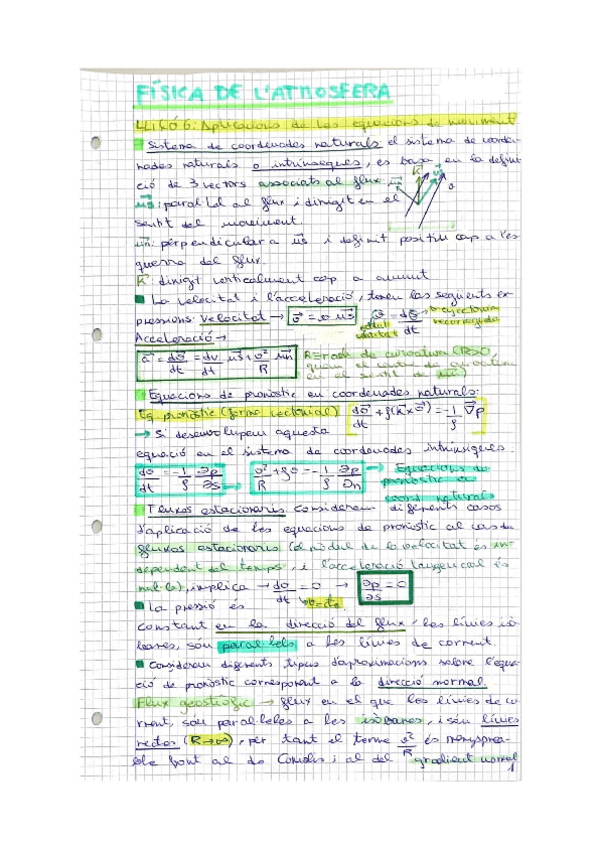 FÍSICA DE L'ATMOSFERA
LLIÇÓ 6: Aplicacions de les equacions de moviment
Sistema de coordenades naturals el sistema de coorde-
nades naturals o intrínseques, es basa en la defini-
ció de 3 vectors associats al flux
us: paral·lel al flux i dirigit en el
sentit del moviment.
un: perpendicular a us i definit positiu cap a l'es-
querra del flux.
K: dirigit verticalment cap a amunt
La velocitat i l'acceleració, tenen les següents ex-
pressions: Velocitat → v = v us v = ds/dt → trajectòria recorreguda
Acceleració →
a = dv/dt = dv/dt us + v²/R un R = radi de curvatura (R>0,
quan el centre de curvatura
en el sentit de un)
Equacions de pronòstic en coordenades naturals:
Eq. pronòstic (forma vectorial) dv/dt + f(k×v) = -1/ρ ∇p
→ Si desenvolupem aquesta
equació en el sistema de coordenades intrínseques.
dv/dt = -1/ρ ∂p/∂s → v²/R + fv = -1/ρ ∂p/∂n → Equacions de
pronòstic en
coord. naturals
Fluxos estacionaris Considerem diferents casos
d'aplicació de les equacions de pronòstic al cas de
fluxos estacionaris (el mòdul de la velocitat és in-
dependent del temps, i l'acceleració tangencial és
nul·la), implica → dv/dt = 0 → ∂p/∂s = 0
v = cte
La pressió és
constant en la direcció del flux · les línies isò-
bares, són paral·lels a les línies de corrent.
Considerem diferents tipus d'aproximacions sobre l'equa-
ció de pronòstic corresponent a la direcció normal.
Flux geostròfic → flux en el que les línies de co-
rrent, són paral·leles a les isòbares, i són línies
rectes (R→∞), per tant el terme v²/R és menysprea-
ble front al de Coriolis i al del gradient normal
1